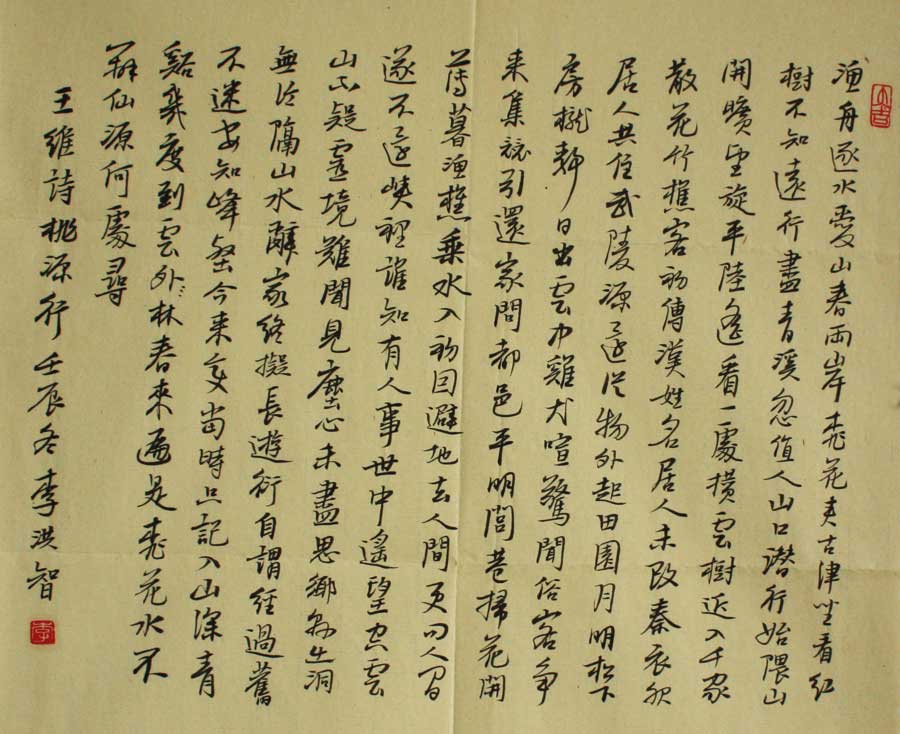 漁舟逐水愛山春兩岸桃花夾古津坐看紅
樹不知遠行盡青溪忽值人山口潛行始隈山
開曠望旋平陸遙看一處攢雲樹近入千家
散花竹樵客初傳漢姓名居人未改秦衣服
居人共住武陵源還從物外起田園月明松下
房櫳靜日出雲中雞犬喧驚聞俗客爭
來集競引還家問都邑平明閭巷掃花開
薄暮漁樵乘水入初因避地去人間更问人间
遂不還峽裡誰知有人事世中遙望空雲
山不疑靈境難聞見塵心未盡思鄉縣出洞
無論隔山水辭家終擬長遊衍自謂經過舊
不迷安知峰壑今來變當時只記入山深青
谿幾度到雲外林春來遍是桃花水不
辨仙源何處尋
王維詩桃源行壬辰冬李洪智
李